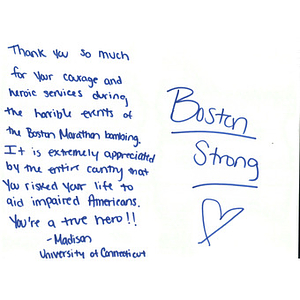 Thank you so much
for your courage and
heroic services during
the horrible events of
the Boston Marathon bombing.
It is extremely appreciated
by the entire country that
you risked your life to
aid impaired Americans.
You're a true hero!!
-Madison
University of Connecticut
Boston
Strong